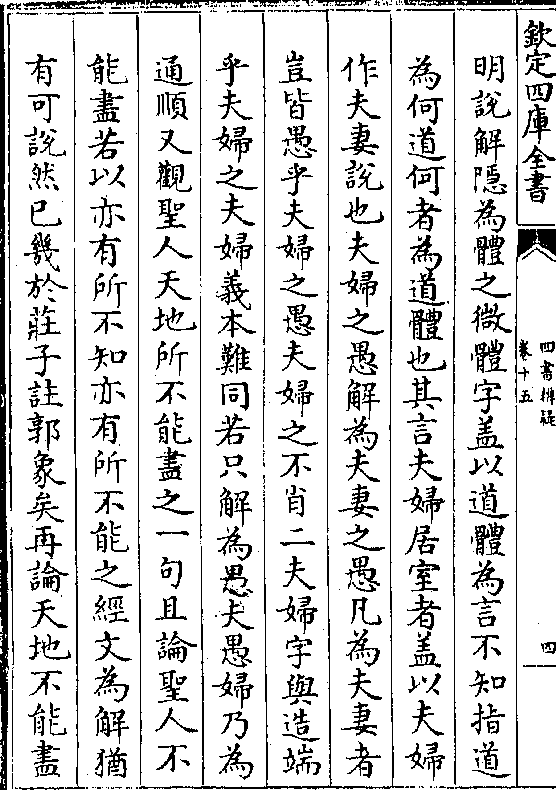 欽定四庫全書
四書辨疑
卷十五
四
明說解隱為體之微體字盖以道體為言不知指道
為何道何者為道體也其言夫婦居室者盖以夫婦
作夫妻說也夫婦之愚解為夫妻之愚凡為夫妻者
豈皆愚乎夫婦之愚夫婦之不肖二夫婦字與造端
乎夫婦之夫婦義本難同若只解為愚夫愚婦乃為
通順又觀聖人天地所不能盡之一句且論聖人不
能盡若以亦有所不知亦有所不能之經文為解猶
有可說然已幾於莊子註郭象矣再論天地不能盡